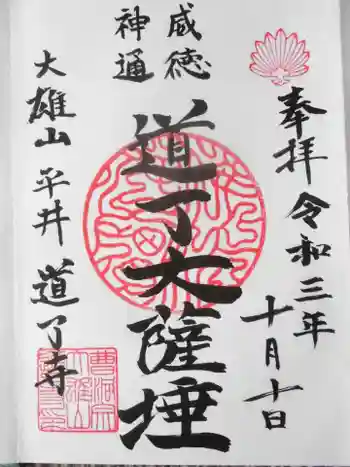 奉拝 令和三年
十月十日
威徳
神通
道了大薩埵
大雄山 平井 道了寺